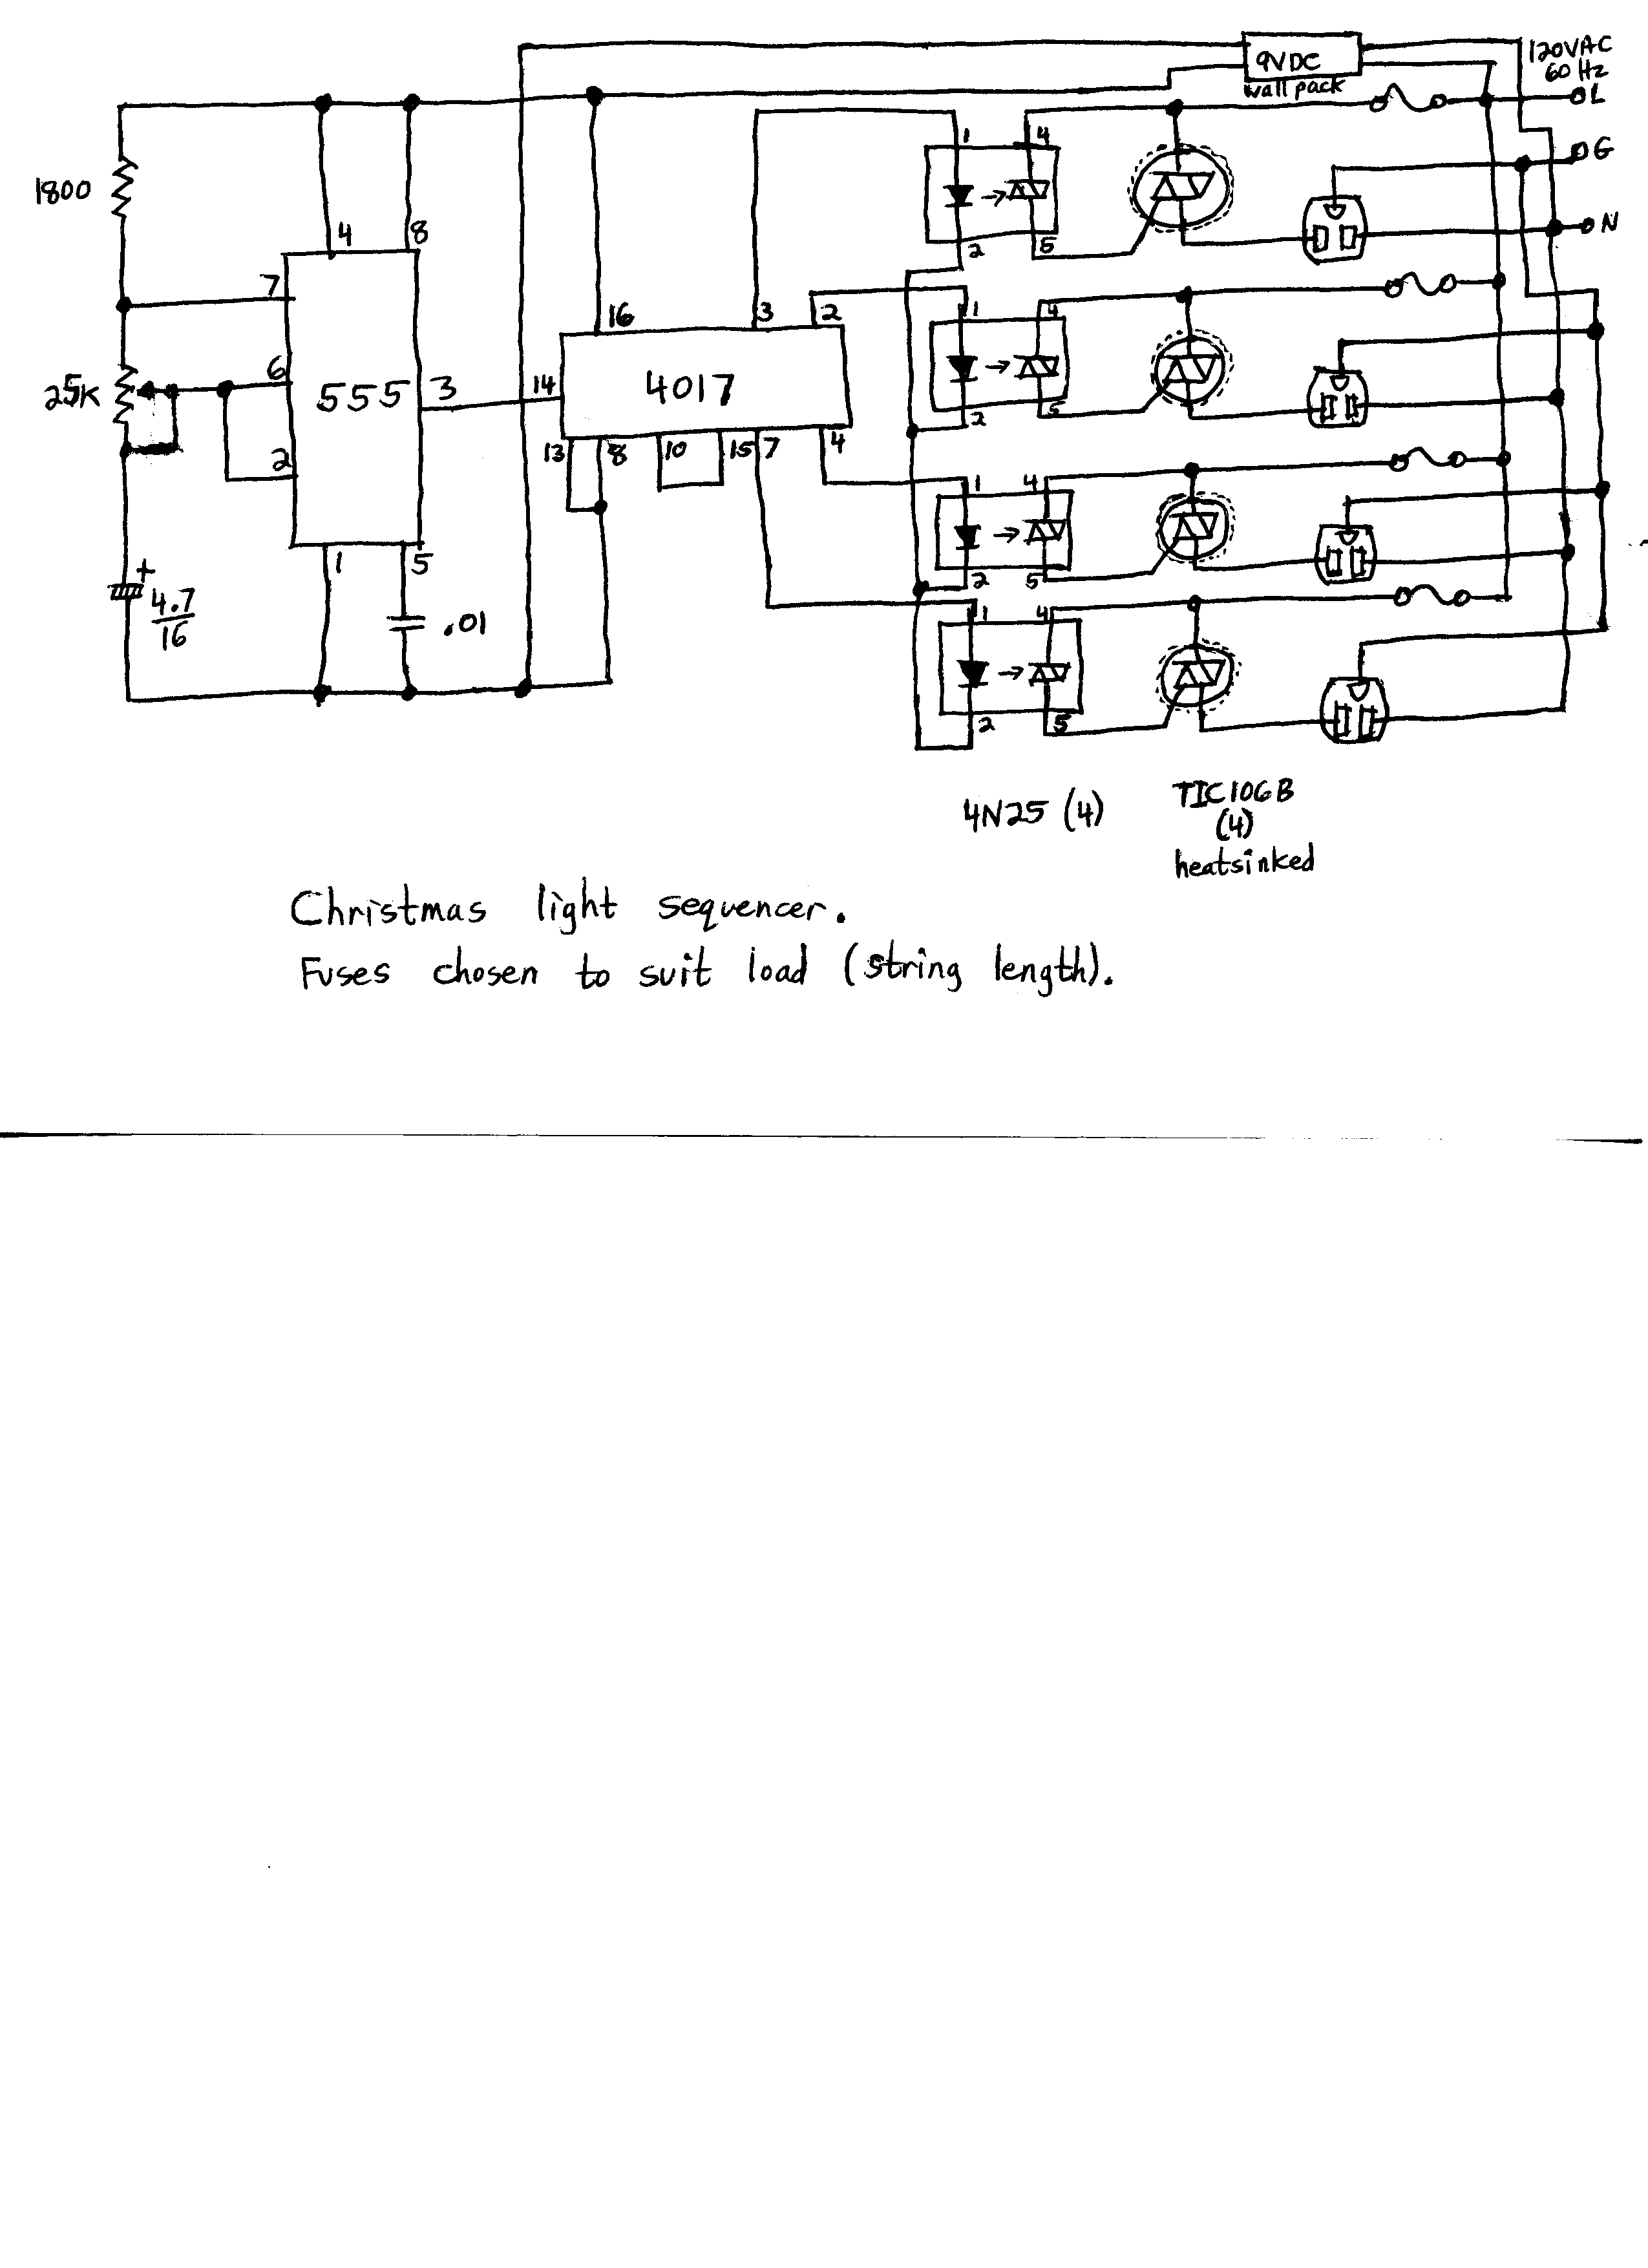 120VAC
60 Hz
9VDC
wall pack
L
G
N
1800
25K
+
4.7
16
.01
4
8
7
6
2
3
1
5
555
16
3
2
14
4017
13
8
10
15
7
4
1
4
2
5
1
4
2
5
1
4
2
5
1
4
2
5
4N25 (4)
TIC106B
(4)
heatsinked
Christmas light sequencer.
Fuses chosen to suit load (string length).